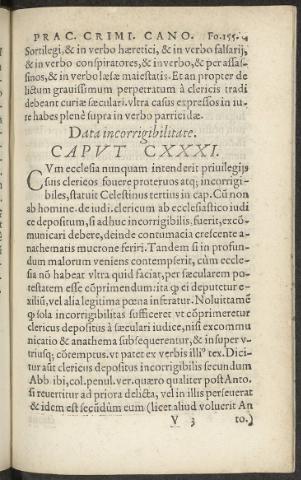 PRAC. CRIMI. CANO. Fo.155.
Sortilegi, & in verbo hæretici, & in verbo falsarij,
& in verbo conspiratores, & inverbo, & per assas-
sinos, & in verbo læsæ maiestatis. Et an propter de
lictum grauissimum perpetratum à clericis tradi
debeant curiæ sæculari. vltra casus expressos in iu-
re habes plenè supra in verbo parricidæ.
Data incorrigibilitate.
CAPVT CXXXI.
CVm ecclesia nunquam intenderit priuilegijs
suis clericos fouere proteruos atq; incorrigi-
biles, statuit Celestinus tertius in cap. Cū non
ab homine. de iudi. clericum ab ecclesiastico iudi
ce depositum, si adhuc incorrigibilis, fuerit, excō-
municari debere, deinde contumacia crescente a-
nathematis mucrone feriri. Tandem si in profun-
dum malorum veniens contempserit, cùm eccle-
sia nō habeat vltra quid faciat, per sæcularem po-
testatem esse cōprimendum: ita ꝙ ei deputetur e-
xiliū, vel alia legitima pœna inferatur. Noluit tamē
ꝙ sola incorrigibilitas sufficeret vt cōprimeretur
clericus depositus à sæculari iudice, nisi excommu
nicatio & anathema subsequerentur, & insuper v-
triusq; cōtemptus. vt patet ex verbis illiꝰ tex. Dici-
tur aūt clericus depositus incorrigibilis secundum
Abb. ibi, col. penul. ver. quæro qualiter post Anto.
si reuertitur ad priora delicta, vel in illis perseuerat
& idem est secūdùm eum (licet aliud voluerit An
V 3 to.)